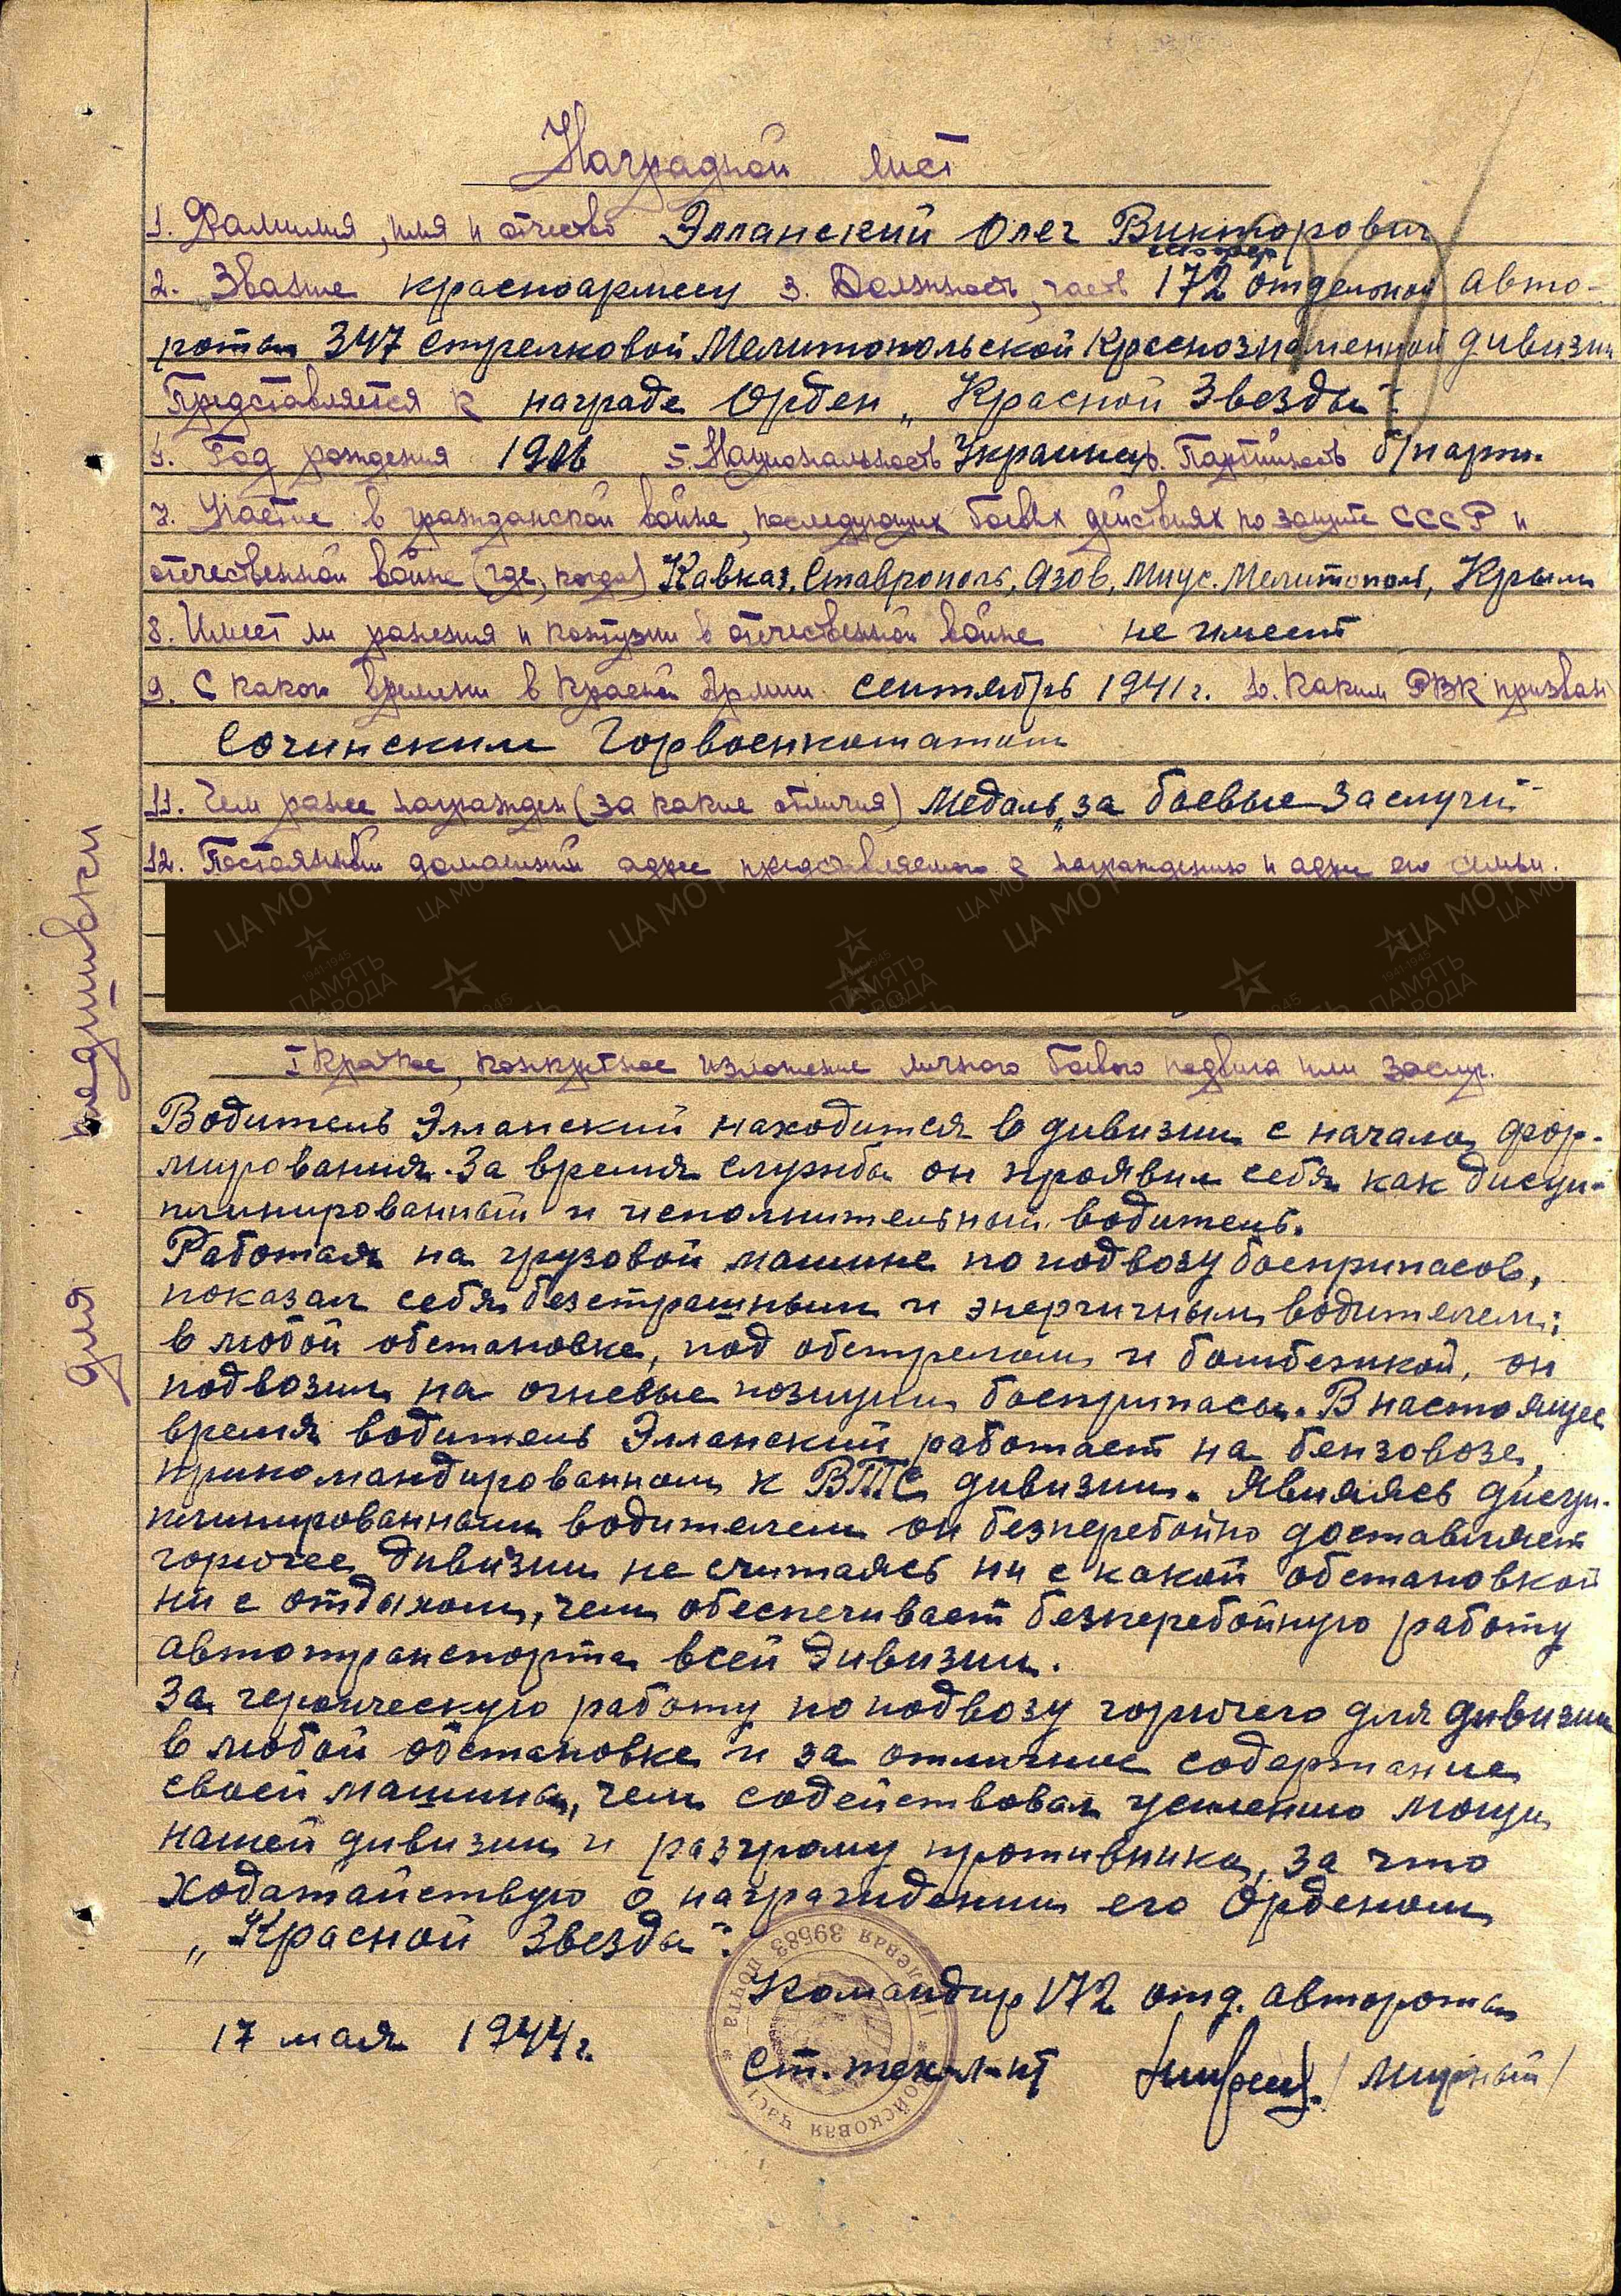 Наградной лист
1. Фамилия, имя и отчество Элланский Олег Викторович
шофер
2. Звание красноармеец 3. Должность, часть 172 отдельной авто-
роты 347 стрелковой Мелитопольской Краснознаменной дивизии
Представляется к награде Орден „Красной Звезды".
4. Год рождения 1906 5. Национальность Украинец 6. Партийность б/парт.
7. Участие в гражданской войне, последующих боевых действиях по защите СССР и
отечественной войне (где, когда) Кавказ, Ставрополь, Азов, Миус. Мелитополь, Крым
8. Имеет ли ранения и контузии в отечественной войне не имеет
9. С какого времени в Красной Армии сентябрь 1941 г. 10. Каким РВК призван
Сочинским Горвоенкоматом
11. Чем ранее награжден (за какие отличия) Медаль „за боевые заслуги"
12. Постоянный домашний адрес представляемого к награждению и адрес его семьи.
I Краткое, конкретное изложение личного боевого подвига или заслуг.
Водитель Элланский находится в дивизии с начала фор-
мирования. За время службы он проявил себя как дисци-
плинированный и исполнительный водитель.
Работая на грузовой машине по подвозу боеприпасов,
показал себя безстрашным и энергичным водителем;
в любой обстановке, под обстрелом и бомбежкой, он
подвозил на огневые позиции боеприпасы. В настоящее
время водитель Элланский работает на бензовозе,
прикомандированном к ВТС дивизии. Являясь дисци-
плинированным водителем он безперебойно доставляет
горючее дивизии не считаясь ни с какой обстановкой
ни с отдыхом, чем обеспечивает безперебойную работу
автотранспорта всей дивизии.
За героическую работу по подвозу горючего для дивизии
в любой обстановке и за отличное содержание
своей машины, чем содействовал усилению мощи
нашей дивизии и разгрому противника, за что
ходатайствую о награждении его Орденом
„Красной Звезды".
Командир 172 отд. автороты
17 мая 1944 г.
Ст. тех-л-нт /Мирный/
Полевая почта 39583 * Войсковая часть *
для подшивки